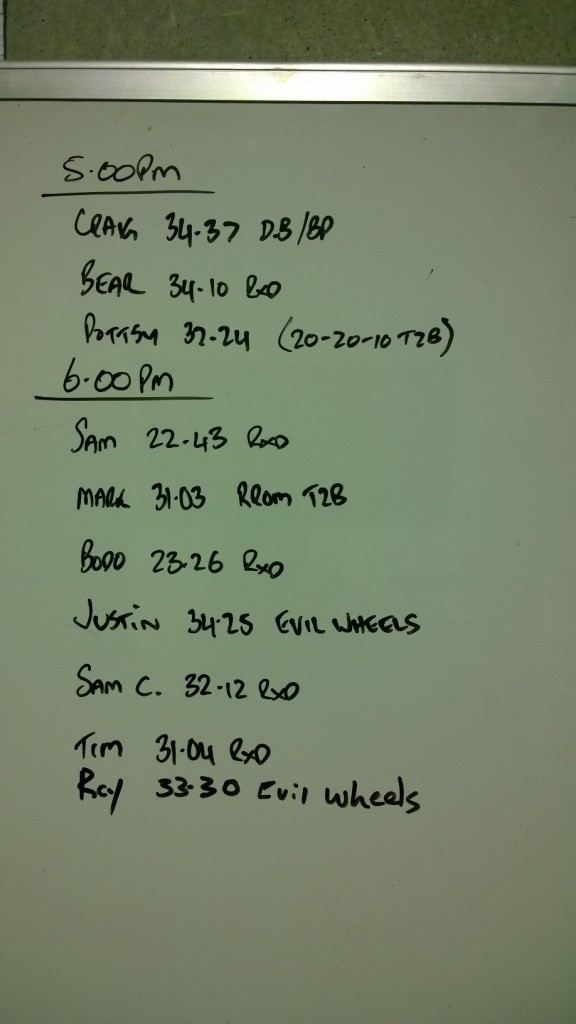 5.00Pm
CRAIG 34-37 DB/BP
BEAR 34-10 RxD
POTTSY 32-24 (20-20-10 T2B)
6.00Pm
SAM 22-43 RxD
MARK 31.03 RROM T2B
BODO 23-26 RxD
JUSTIN 34.25 EVIL WHEELS
SAM C. 32-12 RxD
TIM 31.04 RxD
Ray 33-30 Evil wheels